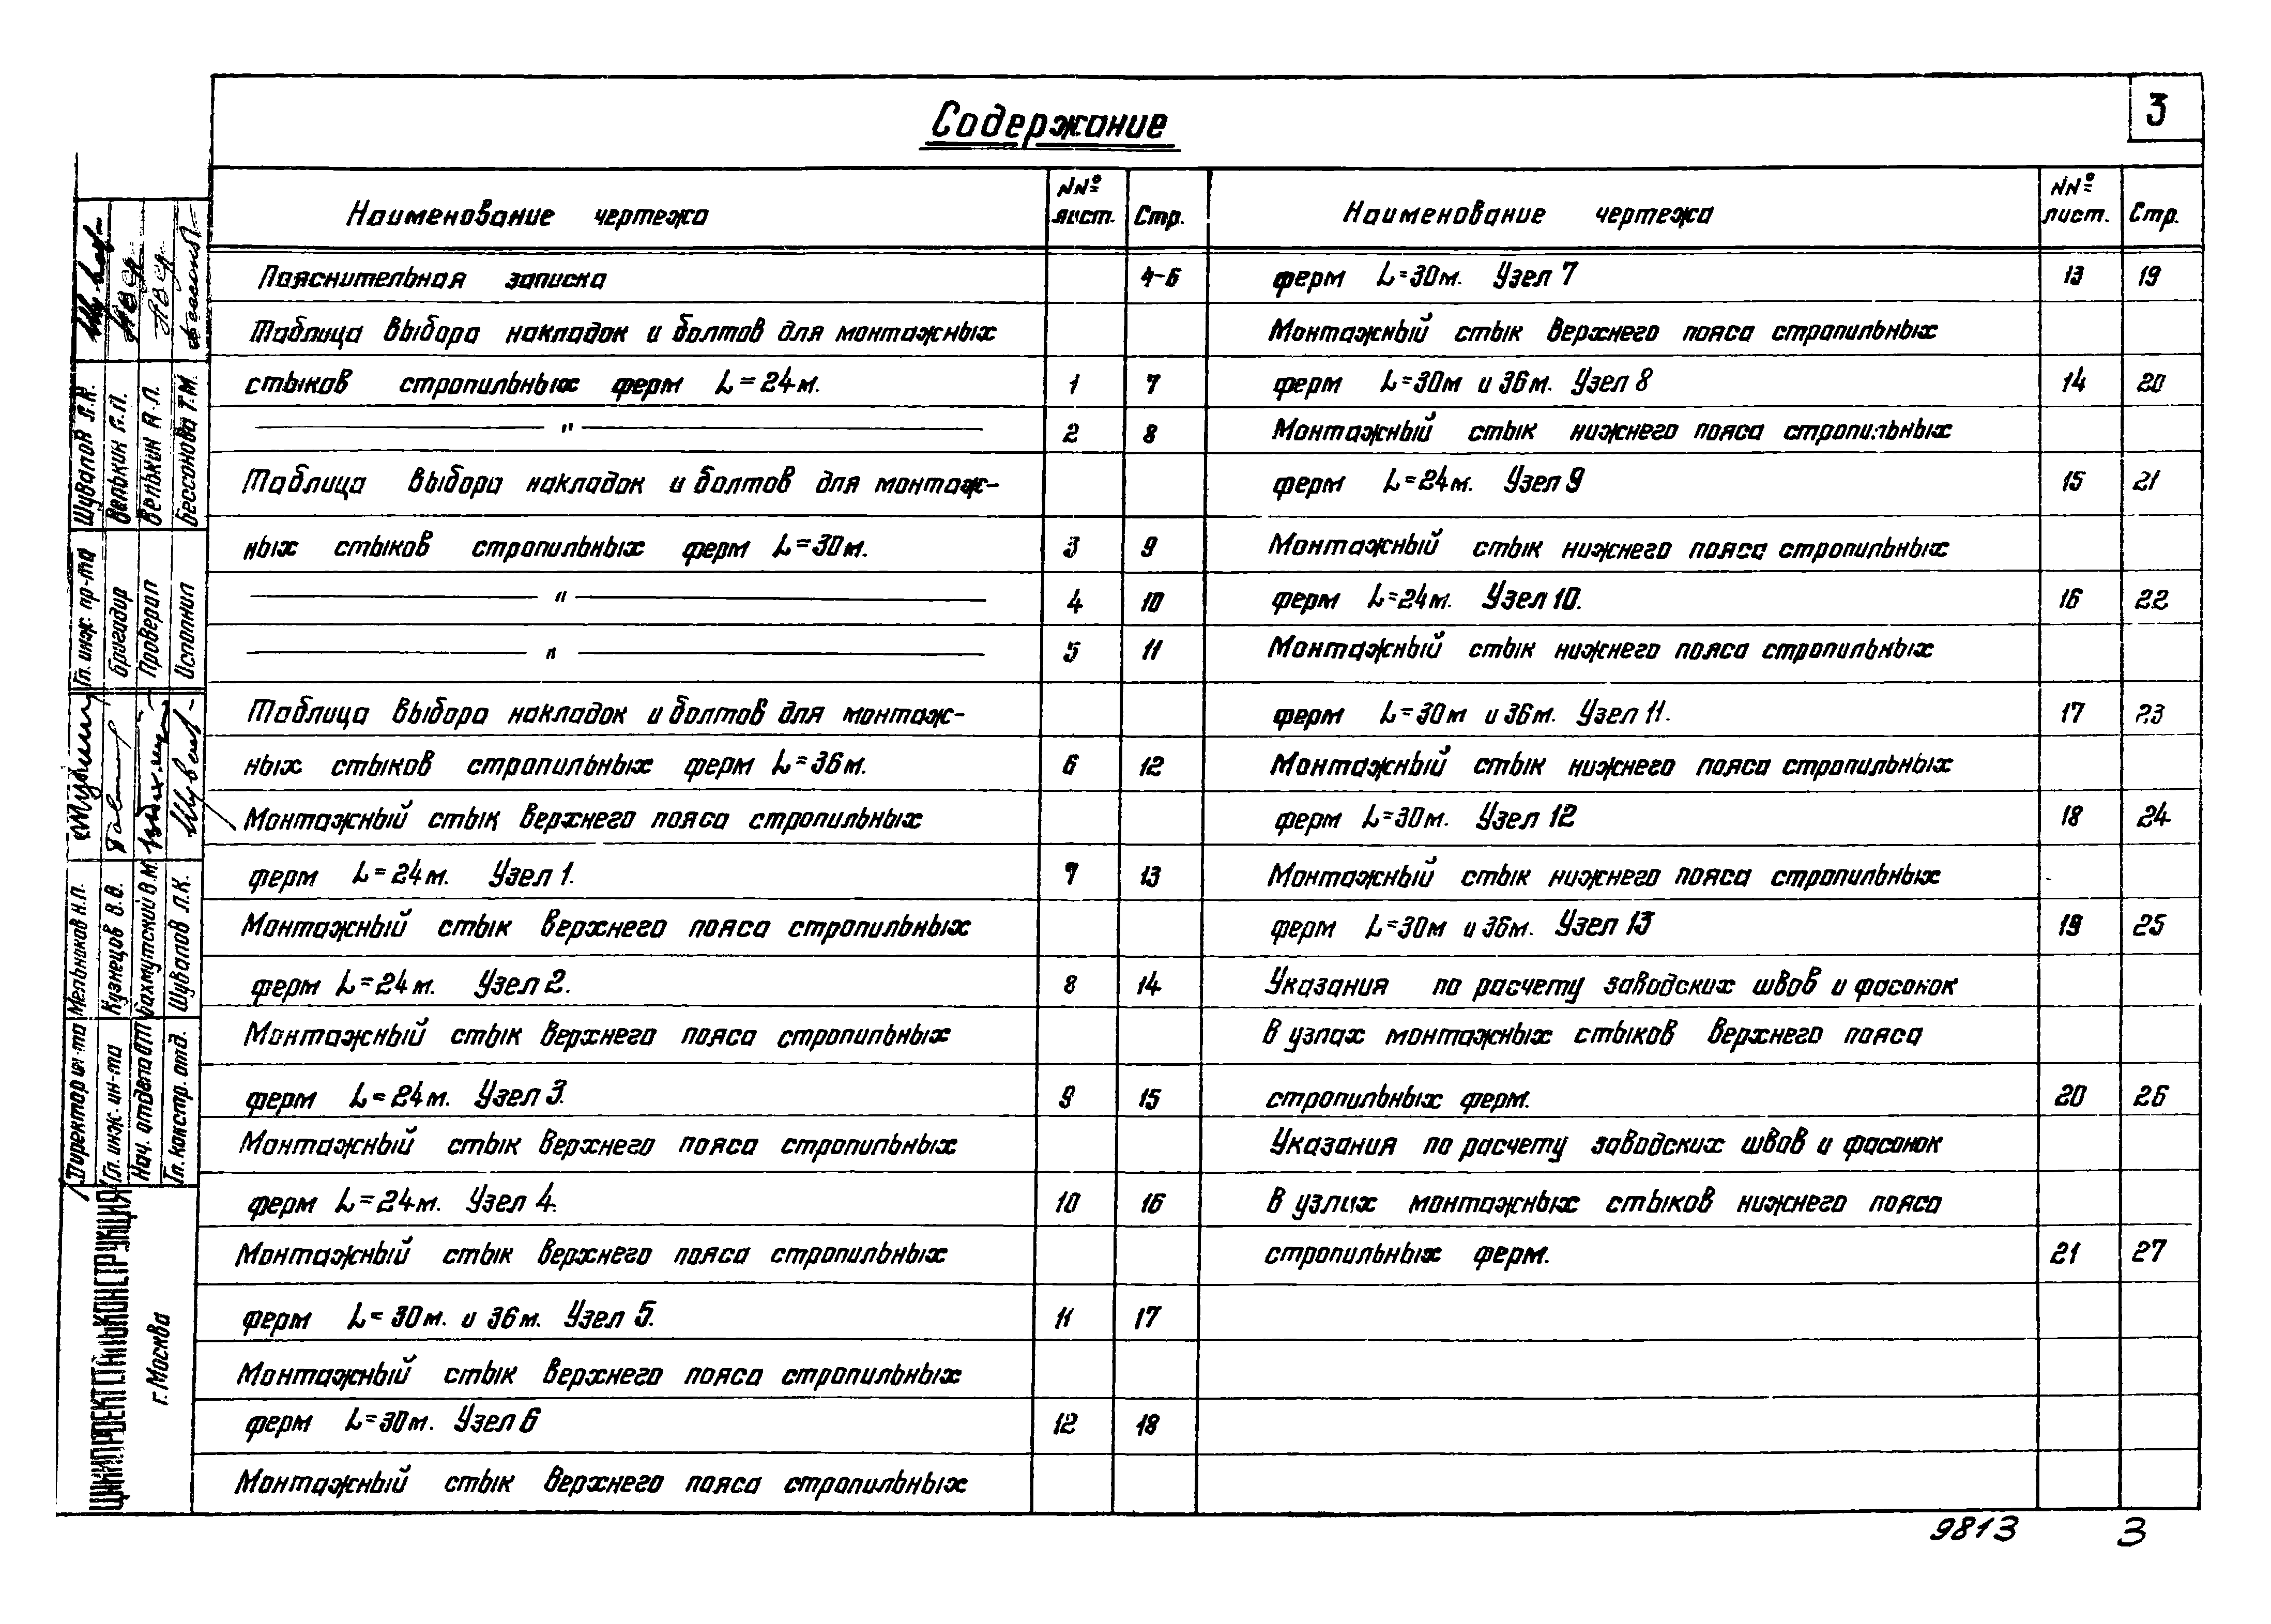 3
Содержание
Наименование чертежа
NNº лист.
Стр.
Пояснительная записка 4-6
Таблица выбора накладок и болтов для монтажных
стыков стропильных ферм L=24м. 1 7
—— " —— 2 8
Таблица выбора накладок и болтов для монтаж-
ных стыков стропильных ферм L=30м. 3 9
—— " —— 4 10
—— " —— 5 11
Таблица выбора накладок и болтов для монтаж-
ных стыков стропильных ферм L=36м. 6 12
Монтажный стык верхнего пояса стропильных
ферм L=24м. Узел 1. 7 13
Монтажный стык верхнего пояса стропильных
ферм L=24м. Узел 2. 8 14
Монтажный стык верхнего пояса стропильных
ферм L=24м. Узел 3. 9 15
Монтажный стык верхнего пояса стропильных
ферм L=24м. Узел 4. 10 16
Монтажный стык верхнего пояса стропильных
ферм L=30м. и 36м. Узел 5. 11 17
Монтажный стык верхнего пояса стропильных
ферм L=30м. Узел 6 12 18
Монтажный стык верхнего пояса стропильных
Наименование чертежа
NNº лист.
Стр.
ферм L=30м. Узел 7 13 19
Монтажный стык верхнего пояса стропильных
ферм L=30м и 36м. Узел 8 14 20
Монтажный стык нижнего пояса стропильных
ферм L=24м. Узел 9 15 21
Монтажный стык нижнего пояса стропильных
ферм L=24м. Узел 10. 16 22
Монтажный стык нижнего пояса стропильных
ферм L=30м и 36м. Узел 11. 17 23
Монтажный стык нижнего пояса стропильных
ферм L=30м. Узел 12 18 24
Монтажный стык нижнего пояса стропильных
ферм L=30м и 36м. Узел 13 19 25
Указания по расчету заводских швов и фасонок
в узлах монтажных стыков верхнего пояса
стропильных ферм. 20 26
Указания по расчету заводских швов и фасонок
в узлах монтажных стыков нижнего пояса
стропильных ферм. 21 27
ЦНИИПРОЕКТСТАЛЬКОНСТРУКЦИЯ
г. Москва
Директор ин-та Мельников Н.П.
Гл. инж. ин-та Кузнецов В.В.
Нач. отдела ОТП Бахмутский В.М.
Гл. констр. отд. Шувалов Л.К.
Гл. инж. пр-та Шувалов Л.К.
Бригадир Велькин
Проверил Велькин
Исполнил Бессонова Т.М.
9813 3